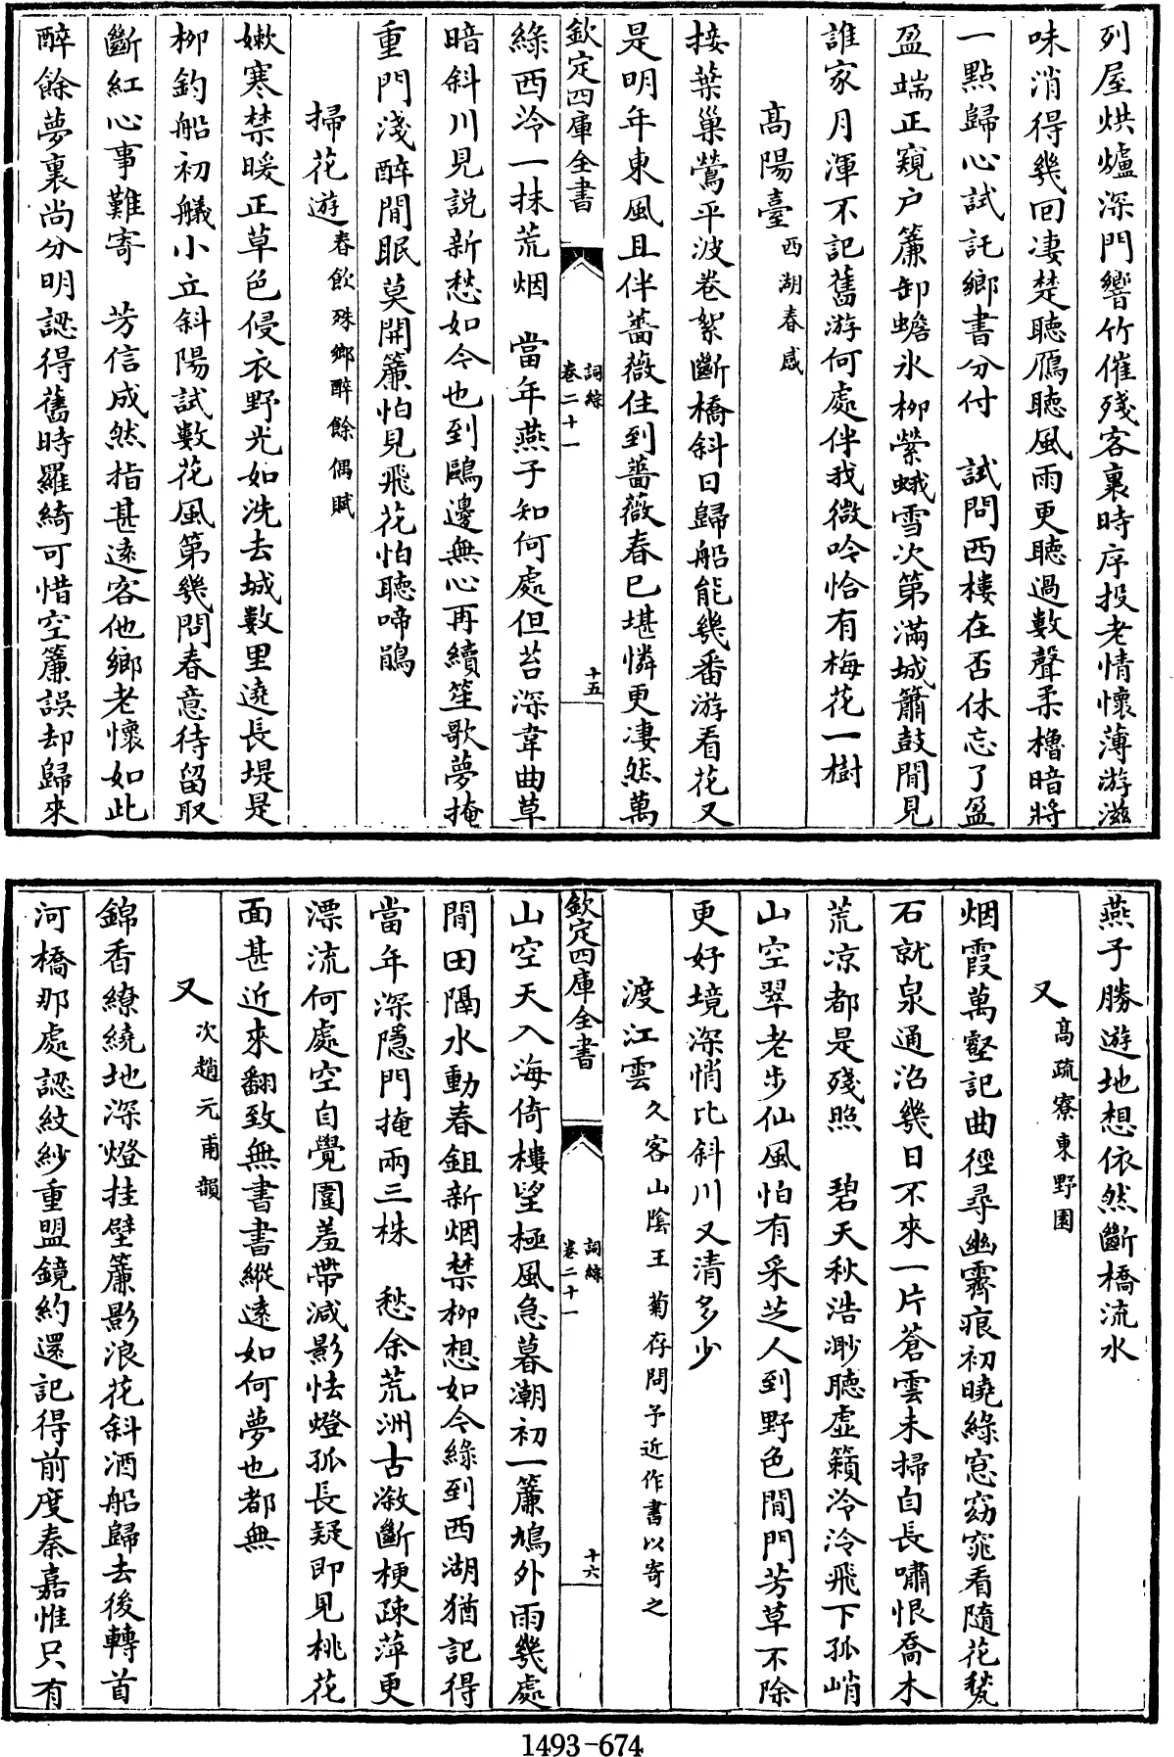 列屋烘爐深門響竹催殘客裏時序投老情懷薄游滋
味消得幾回凄楚聽鴈聽風雨更聽過數聲柔櫓暗將
一點歸心試託鄉書分付　試問西樓在否休忘了盈
盈端正窺户簾卸蟾氷柳縈蛾雪次第滿城簫鼓閒見
誰家月渾不記舊游何處伴我微吟恰有梅花一樹
高陽臺西湖春感
接葉巢鶯平波卷絮斷橋斜日歸船能幾番游看花又
是明年東風且伴薔薇住到薔薇春已堪憐更凄然萬
欽定四庫全書
詞綜
卷二十一
十五
綠西泠一抹荒烟　當年燕子知何處但苔深韋曲草
暗斜川見説新愁如今也到鷗邊無心再續笙歌夢掩
重門淺醉閒眠莫開簾怕見飛花怕聽啼鵑
掃花遊春飲殊鄉醉餘偶賦
嫩寒禁暖正草色侵衣野光如洗去城數里遶長堤是
柳釣船初艤小立斜陽試數花風第幾問春意待留取
斷紅心事難寄　芳信成然指甚遠客他鄉老懷如此
醉餘夢裏尚分明認得舊時羅綺可惜空簾誤却歸來
燕子勝遊地想依然斷橋流水
又高疏寮東野園
烟霞萬壑記曲徑尋幽霽痕初曉綠窓窈窕看隨花甃
石就泉通沼幾日不來一片蒼雲未掃自長嘯恨喬木
荒凉都是殘照　碧天秋浩渺聽虛籟泠泠飛下孤峭
山空翠老步仙風怕有采芝人到野色閒門芳草不除
更好境深悄比斜川又清多少
渡江雲久客山陰王菊存問予近作書以寄之
欽定四庫全書
詞綜
卷二十一
十六
山空天入海倚樓望極風急暮潮初一簾鳩外雨幾處
閒田隔水動春鉏新烟禁柳想如今綠到西湖猶記得
當年深隱門掩兩三株　愁余荒洲古漵斷梗疎萍更
漂流何處空自覺圍羞帶減影怯燈孤長疑即見桃花
面甚近來翻致無書書縱遠如何夢也都無
又次趙元甫韻
錦香繚繞地深燈挂壁簾影浪花斜酒船歸去後轉首
河橋那處認紋紗重盟鏡約還記得前度秦嘉惟只有
1493-674